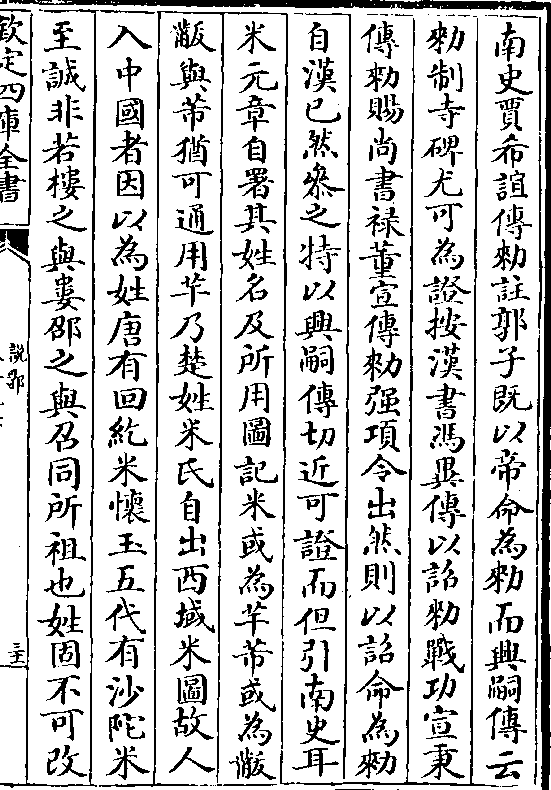 南史賈希誼傳勅註郭子既以帝命為勅而興嗣傳云
勅制寺碑尤可為證按漢書馮異傳以詔勅戰功宣秉
傳勅賜尚書祿董宣傳勅强項令出然則以詔命為勅
自漢已然叅之特以興嗣傳切近可證而但引南史耳
米元章自署其姓名及所用圖記米或為芊芾或為黻
黻與芾猶可通用芉乃楚姓米氏自出西域米國故人
入中國者因以為姓唐有回紇米懷玉五代有沙陀米
至誠非若樓之與婁邵之與召同所祖也姓固不可改
欽定四庫全書
說郛